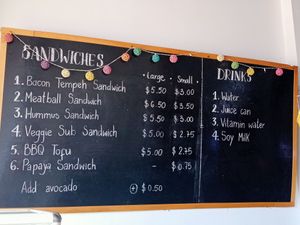 SANDWICHES
• Large • Small •
1. Bacon Tempeh Sandwich $5.50 $3.00
2. Meatball Sandwich $6.50 $3.50
3. Hummus Sandwich $5.50 $3.00
4. Veggie Sub Sandwich $5.00 $2.75
5. BBQ Tofu $5.00 $2.75
6. Papaya Sandwich - $0.75
Add avocado + $0.50
DRINKS
1. Water
2. Juice can
3. Vitamin water
4. Soy Milk